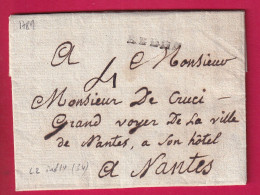 1789
REDON
A Monsieur
4
Monsieur De Cruci
Grand voyer De la ville
de Nantes, a son hôtel
a Nantes